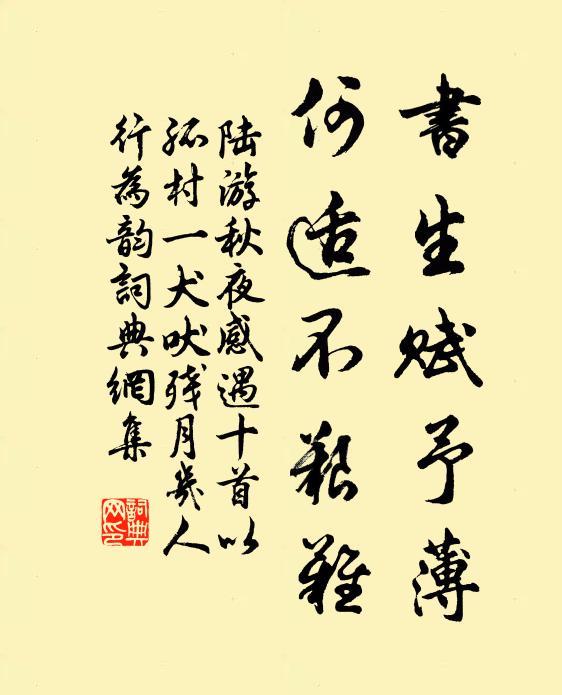 書生賦予薄
何适不艱難
陆游秋夜感遇十首以
孤村一犬吠残月幾人
行為韵詞典網集
詞典网印